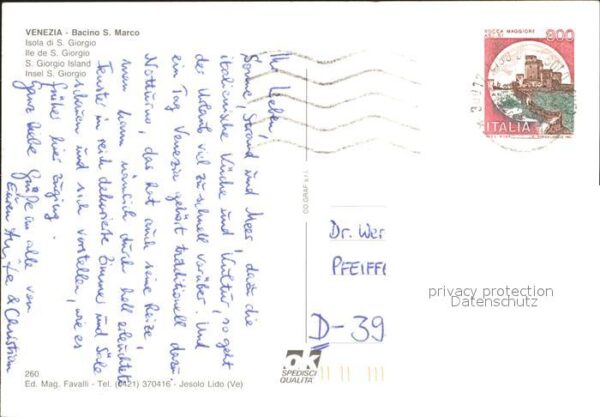 VENEZIA - Bacino S. Marco
Isola di S. Giorgio
Ile de S. Giorgio
S. Giorgio Island
Insel S. Giorgio
Ihr Lieben,
Sonne, Strand und Meer, dazu die
italienische Küche und Kultur, so geht
der Urlaub viel zu schnell vorüber. Und
ein Tag Venedig gehört traditionell dazu.
Notturno, das hat auch seine Reize,
man kann nämlich durch hell erleuchtete
Fenster in reich dekorierte Zimmer und Säle
schauen und sich vorstellen, wie es
früher hier zuging.
Ganz liebe Grüße an alle von
Euren & Christian
260
Ed. Mag. Favalli - Tel. (0421) 370416 - Jesolo Lido (Ve)
CO.GRAF s.r.l.
ok
SPEDISCI
QUALITÀ
ROCCA MAGGIORE
800
ITALIA
Dr. Wer
PFEIFF
D-39
privacy protection
Datenschutz